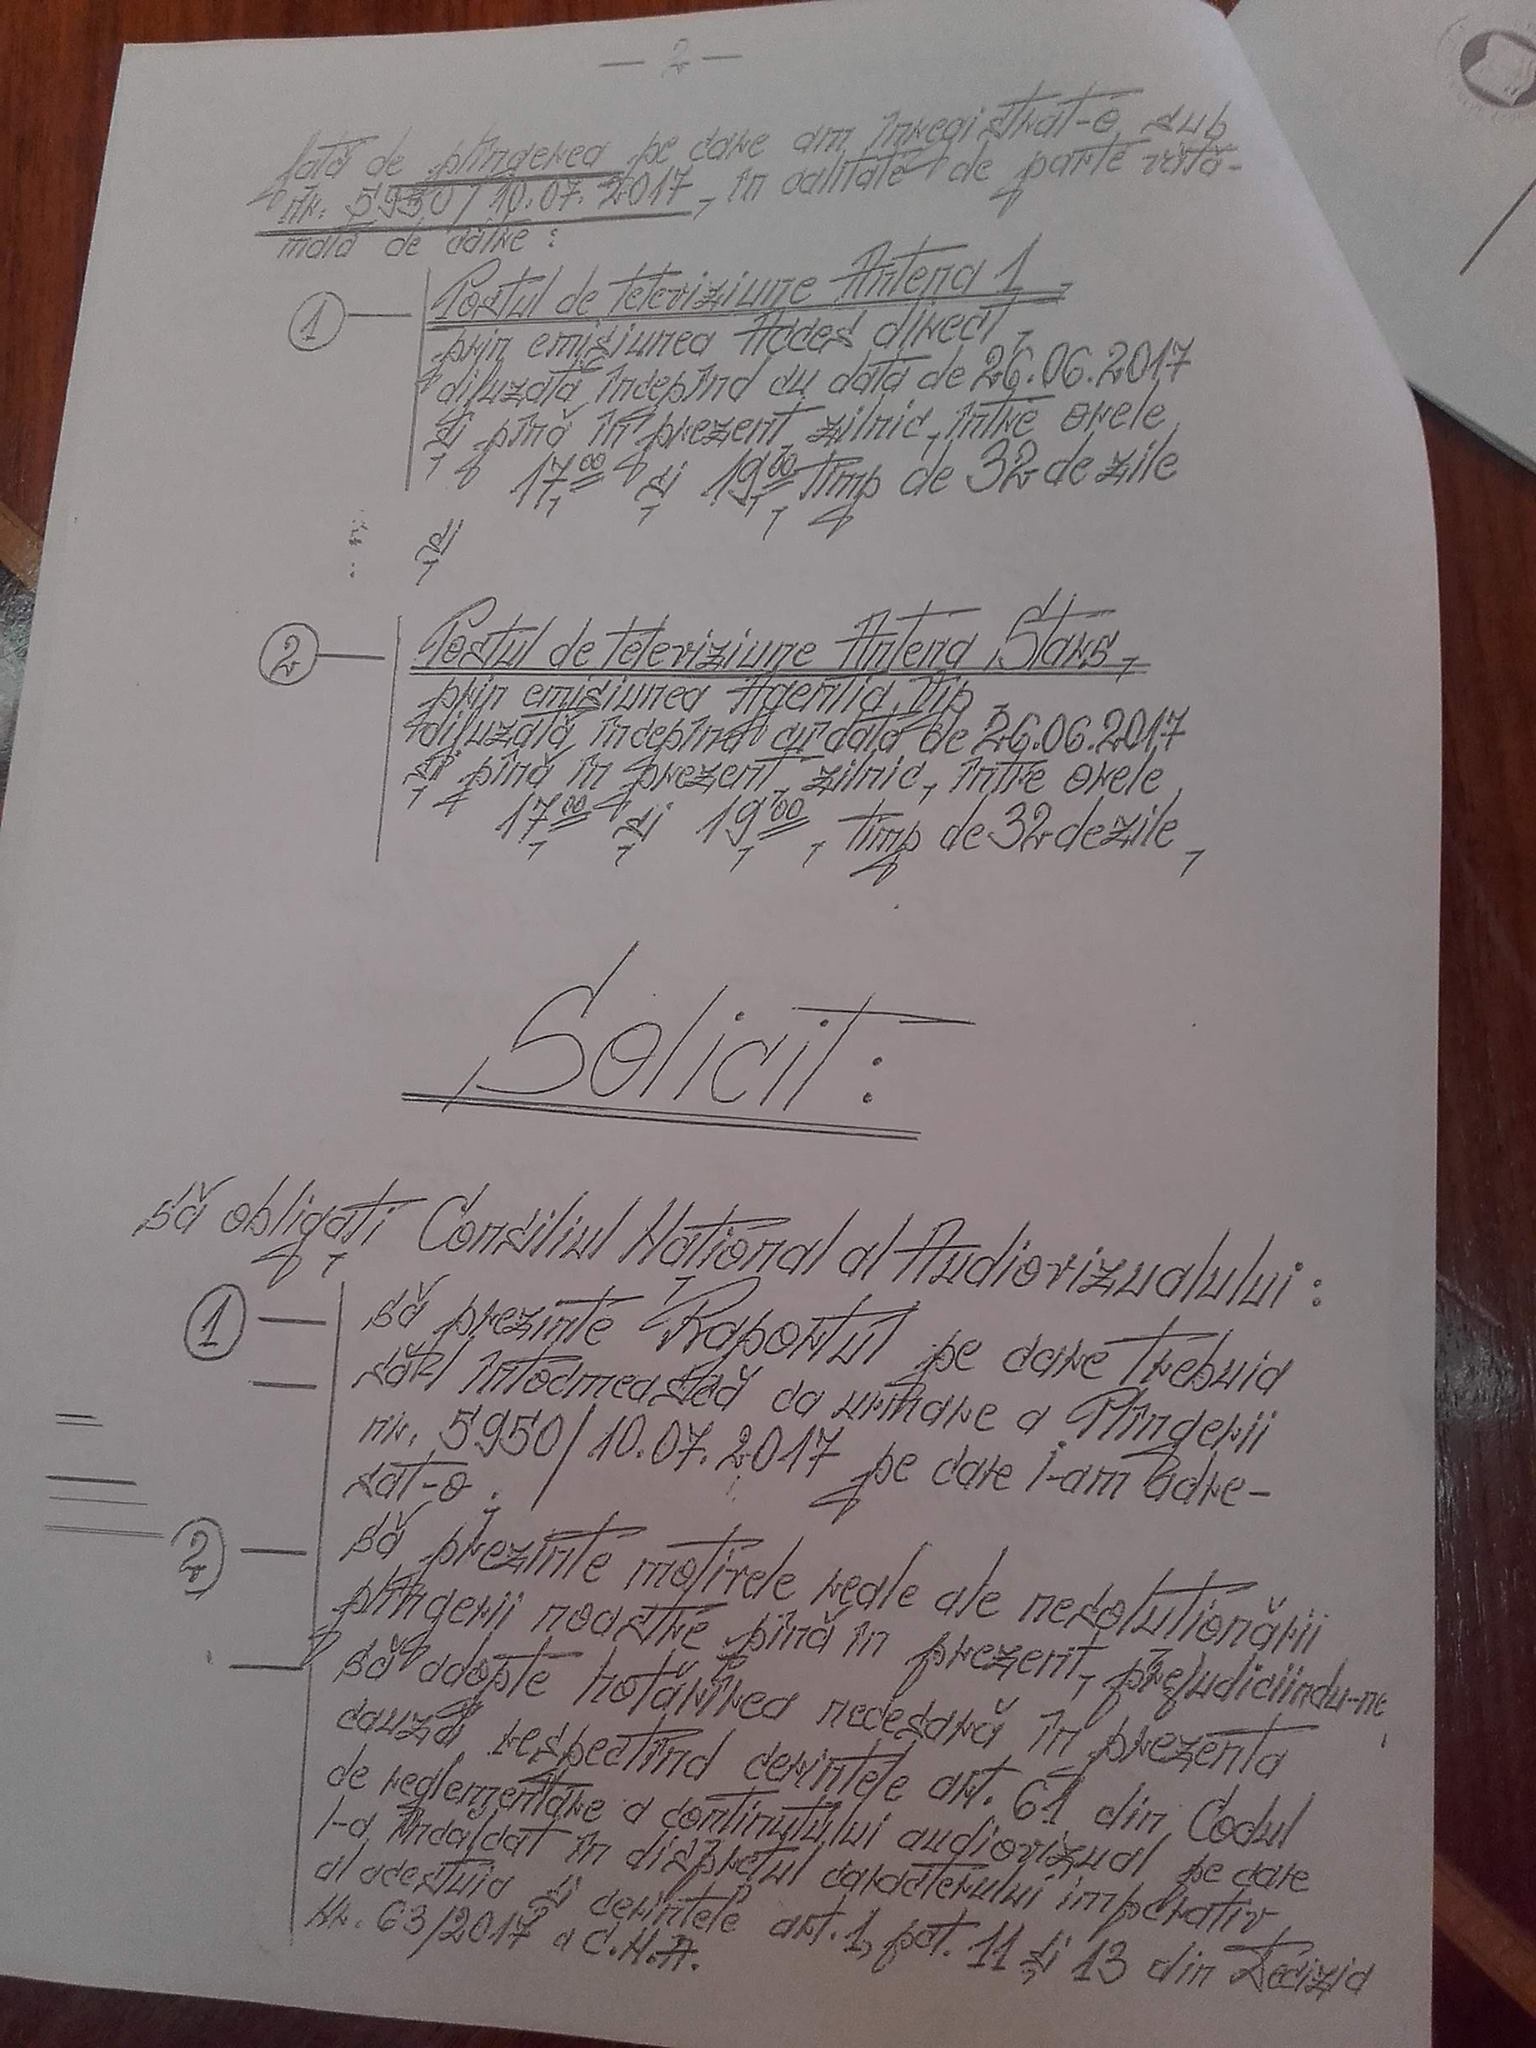 — 2 —
față de plîngerea pe care am înregistrat-o sub
nr. 5950/10.07.2017, în calitate de parte vătă-
mată de către:
1 — Postul de televiziune Antena 1,
prin emisiunea Acces direct,
difuzată începînd cu data de 26.06.2017
și pînă în prezent, zilnic, între orele
17,00 și 19,00, timp de 32 de zile
și
2 — Postul de televiziune Antena Stars,
prin emisiunea Agenția Vip
difuzată începînd cu data de 26.06.2017
și pînă în prezent, zilnic, între orele
17,00 și 19,00, timp de 32 de zile,
Solicit:
să obligați Consiliul Național al Audiovizualului:
1 — să prezinte Raportul pe care trebuia
— să-l întocmească ca urmare a Plîngerii
nr. 5950/10.07.2017 pe care i-am adre-
sat-o;
2 — să prezinte motivele reale ale nesoluționării
plîngerii noastre pînă în prezent, prejudiciindu-ne,
— să adopte hotărîrea necesară în prezenta
cauză respectînd cerințele art. 61 din Codul
de reglementare a conținutului audiovizual pe care
l-a încălcat în disprețul caracterului imperativ
al acestuia și cerințele art. 1, pct. 11 și 13 din Decizia
Nr. 63/2017 a C.N.A.